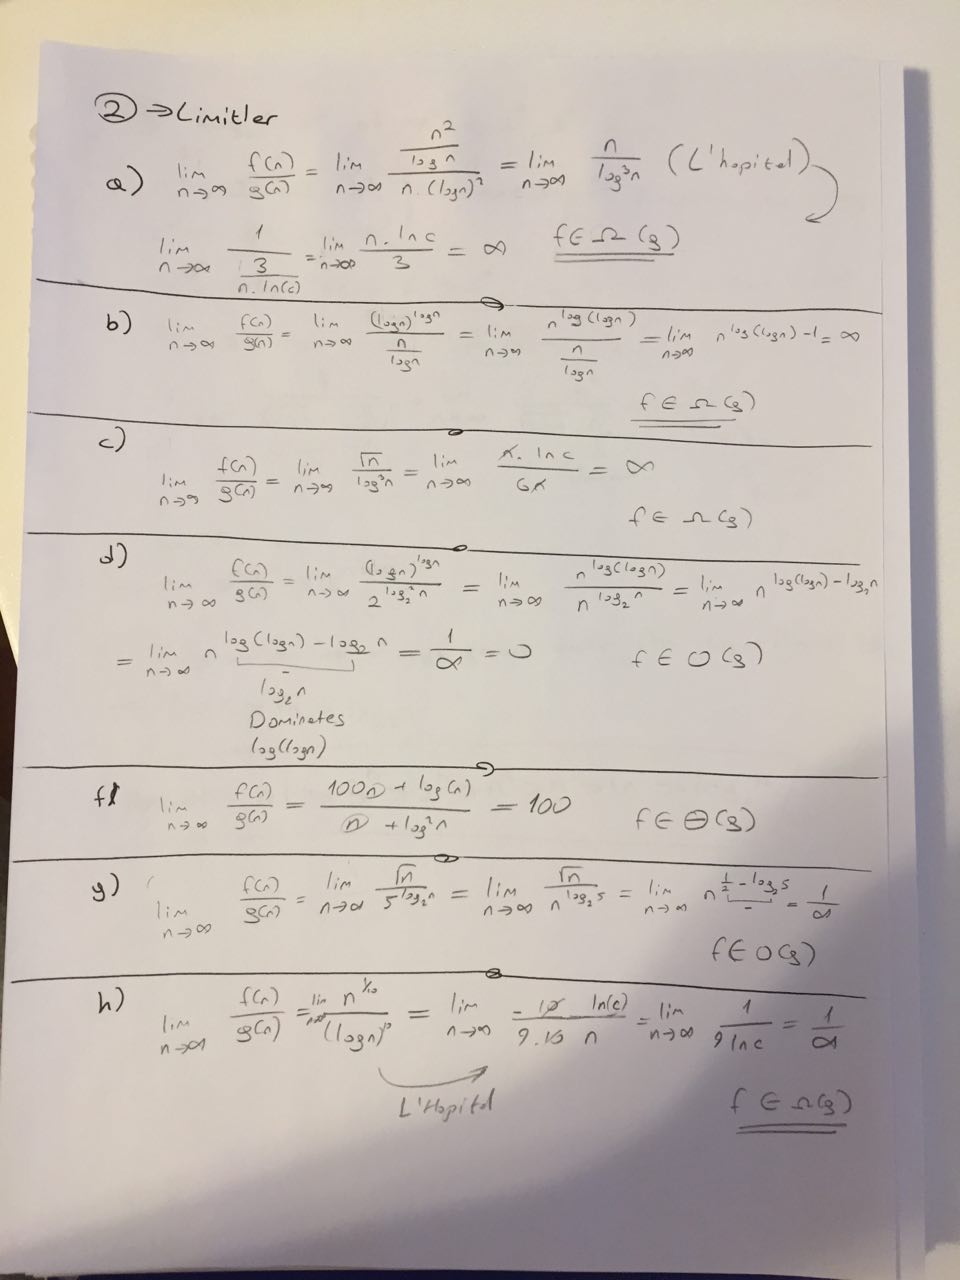 ② → Limitler
a) lim n→∞ f(n)/g(n) = lim n→∞ (n²/log n)/(n.(logn)²) = lim n→∞ n/log³n (L'hopital)
lim n→∞ 1/(3/(n.ln(c))) = lim n→∞ n.lnc/3 = ∞ f∈Ω(g)
b) lim n→∞ f(n)/g(n) = lim n→∞ (logn)^logn/(n/logn) = lim n→∞ n^log(logn)/(n/logn) = lim n→∞ n^log(logn)-1 = ∞
f∈Ω(g)
c)
lim n→∞ f(n)/g(n) = lim n→∞ √n/log³n = lim n→∞ n.lnc/6n = ∞
f∈Ω(g)
d)
lim n→∞ f(n)/g(n) = lim n→∞ (logn)^logn/2^log₂²n = lim n→∞ n^log(logn)/n^log₂n = lim n→∞ n^log(logn)-log₂n
= lim n→∞ n^log(logn)-log₂n = 1/∞ = 0 f∈O(g)
-
log₂n
Dominates
log(logn)
f) lim n→∞ f(n)/g(n) = (100n + log(n))/(n + log²n) = 100 f∈Θ(g)
g) lim n→∞ f(n)/g(n) = lim n→∞ √n/5^log₂n = lim n→∞ √n/n^log₂5 = lim n→∞ n^½-log₂5 = 1/∞
-
f∈O(g)
h) lim n→∞ f(n)/g(n) = lim n→∞ n^1/10/(logn)^10 = lim n→∞ ln(c)/n = lim n→∞ 1/9lnc = 1/∞
L'Hopital
f∈Ω(g)